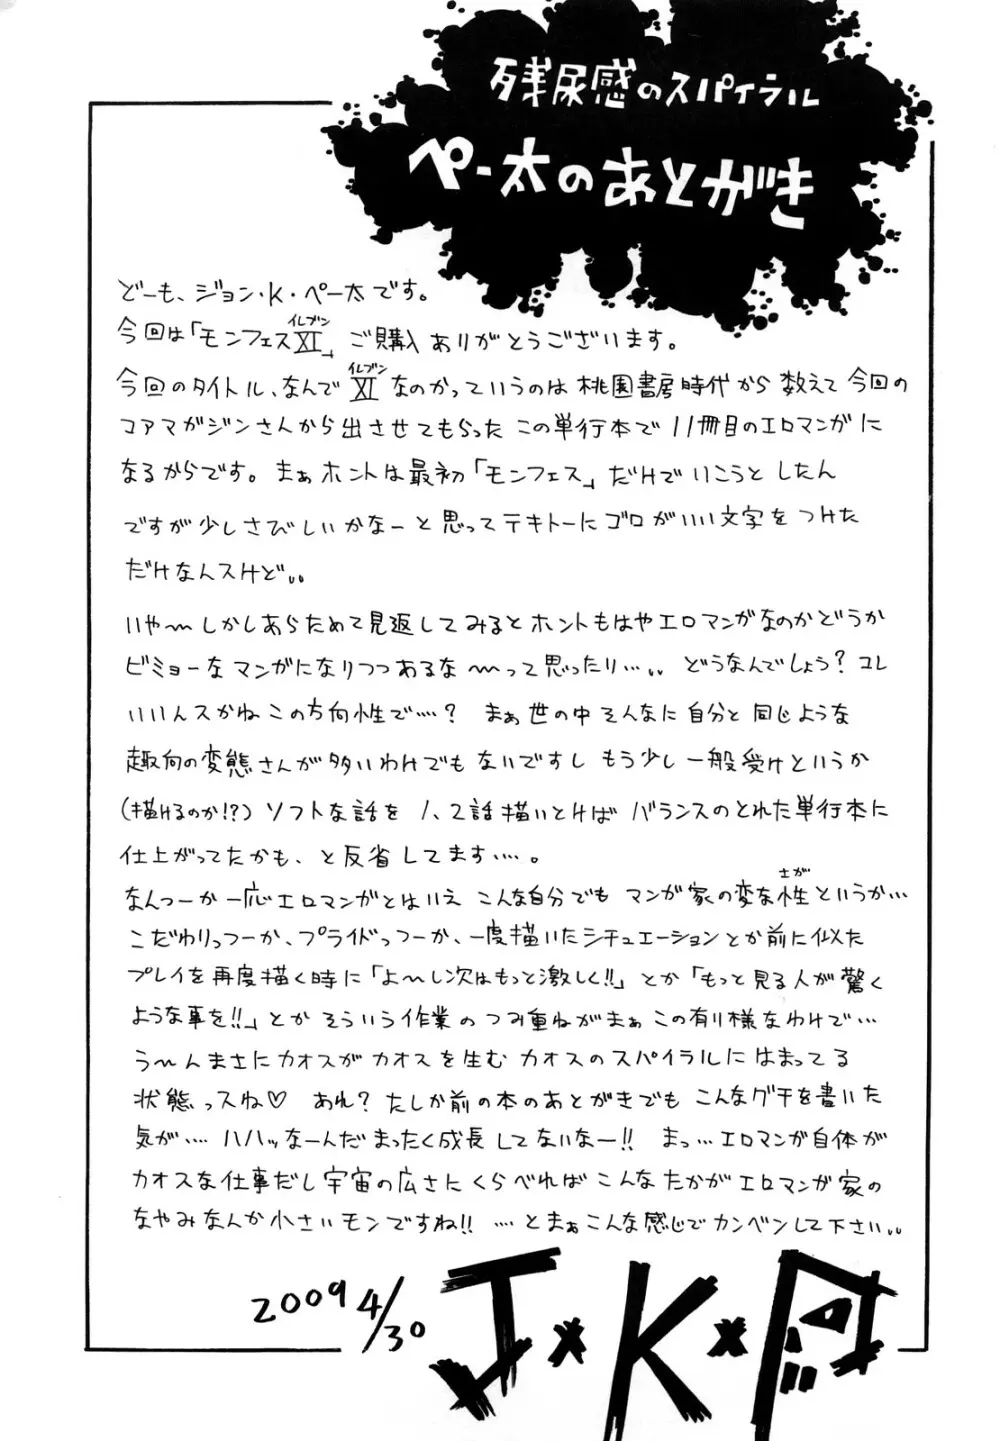 残尿感のスパイラル
ペー太のあとがき
どーも、ジョン・K・ペー太です。
今回は「モンフェスXI」ご購入ありがとうございます。
イレブン
今回のタイトル、なんでXIなのかっていうのは桃園書房時代から数えて今回の
イレブン
コアマガジンさんから出させてもらったこの単行本で11冊目のエロマンガに
なるからです。まぁホントは最初「モンフェス」だけでいこうとしたん
ですが少しさびしいかなーと思ってテキトーにゴロがいい文字をつけた
だけなんスけど。。
いや〜しかしあらためて見返してみるとホントもはやエロマンガなのかどうか
ビミョーなマンガになりつつあるな〜って思ったり…。。どうなんでしょう?コレ
いいんスかねこの方向性で…?まぁ世の中そんなに自分と同じような
趣向の変態さんが多いわけでもないですしもう少し一般受けというか
(描けるのか!?)ソフトな話を1、2話描いとけばバランスのとれた単行本に
仕上がってたかも、と反省してます…。
なんつーか一応エロマンガとはいえこんな自分でもマンガ家の変な性というか…
さが
こだわりっつーか、プライドっつーか、一度描いたシチュエーションとか前に似た
プレイを再度描く時に「よ〜し次はもっと激しく!!」とか「もっと見る人が驚く
ような事を!!」とかそういう作業のつみ重ねがまぁこの有り様なわけで…
う〜んまさにカオスがカオスを生むカオスのスパイラルにはまってる
状態っスね♡ あれ?たしか前の本のあとがきでもこんなグチを書いた
気が…ハハッなーんだまったく成長してないなー!!まっ…エロマンガ自体が
カオスな仕事だし宇宙の広さにくらべればこんなたかがエロマンガ家の
なやみなんか小さいモンですね!!…とまぁこんな感じでカンベンして下さい。。
2009 4/30
J×K×P